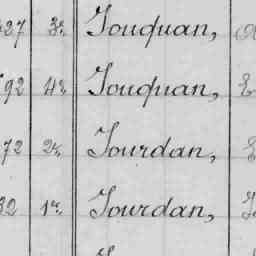 427 3e Jouquan,
92 4e Jouquan,
72 2e Jourdan,
32 1er Jourdan,